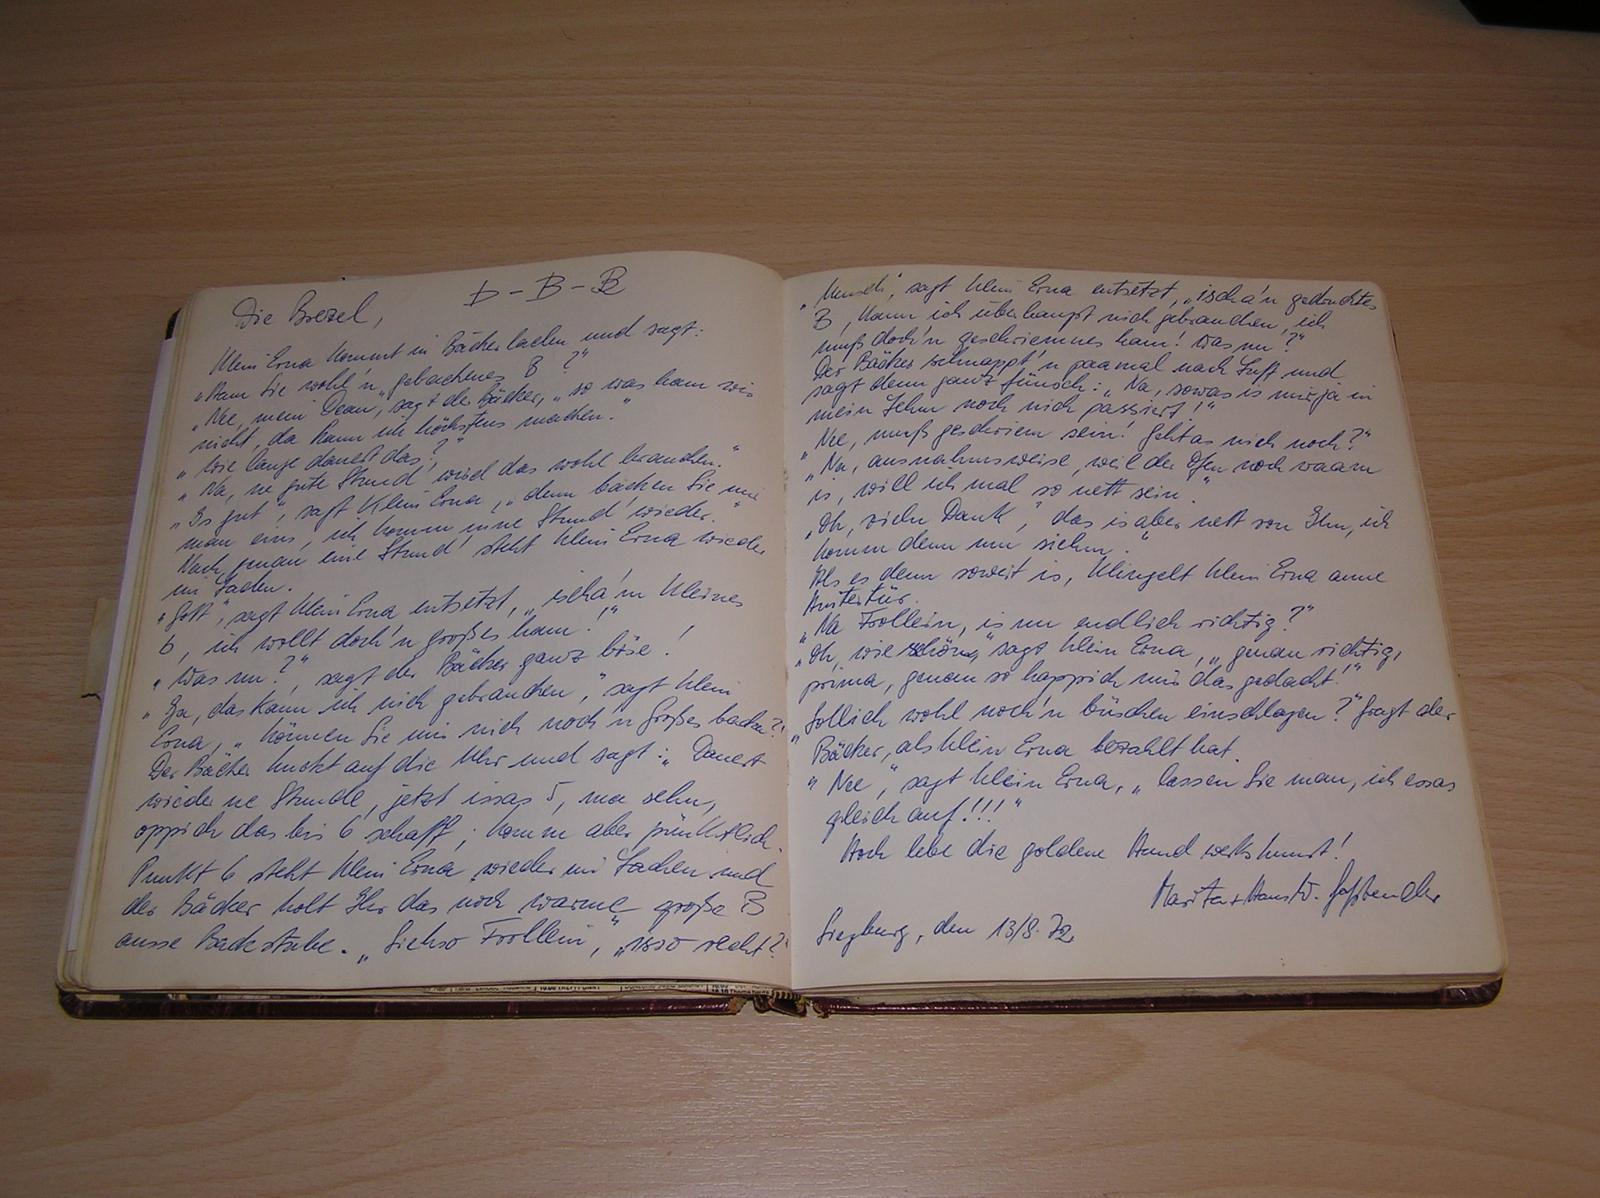 Die Brezel, D-B-B
Klein Erna kommt in Bäckerladen und sagt:
"Ham Sie wohl'n gebackenes B?"
"Nee, mein Dean," sagt der Bäcker, "so was ham wir
nicht, da kann ich höchstens machen."
"Wie lange dauert das?"
"Na, ne gute Stund wird das wohl brauchen."
"Is gut", sagt Klein Erna, "denn backen Sie mir
man eins, ich komm inne Stund' wieder."
Nach genau eine Stund' steht Klein Erna wieder
im Laden.
"Gott", sagt Klein Erna entsetzt, "ischa'n kleines
b, ich wollt doch'n großes ham!"
"Was nu?", sagt der Bäcker ganz böse!
"Ja, das kann ich nich gebrauchen," sagt Klein
Erna, "können Sie mir nich noch'n Großes backn?"
Der Bäcker kuckt auf die Uhr und sagt: "Dauert
wieder ne Stunde, jetzt issas 5, ma sehn,
oppich das bis 6 schaff; komm aber pünktlich.
Punkt 6 steht Klein Erna wieder im Laden und
der Bäcker holt Ihr das noch warme große B
ausse Backstube. "Siehso Frollein," "isso recht?"
"Mensch", sagt Klein Erna entsetzt, "ischa'n gedrucktes
B, kann ich überhaupt nich gebrauchen, ich
muß doch'n geschriemnes ham! Was nu?"
Der Bäcker schnappt'n paamal nach Luft und
sagt denn ganz fünsch: "Na, sowas is mir ja in
mein Lehm noch nich passiert!"
"Nee, muß geschriem sein! Geht as nich noch?"
"Na, ausnahmsweise, weil der Ofen noch waam
is, will ich mal so nett sein."
"Oh, vieln Dank," das is aber nett von Ihn, ich
komm denn um siebm."
Als es denn soweit is, klingelt Klein Erna anne
Hintertür.
"Na Frollein, is nu endlich richtig?"
"Oh, wie schön," sagt Klein Erna, "genau richtig,
prima, genau so happich mir das gedacht!"
"Sollich wohl noch'n büschen einschlagen?" fragt der
Bäcker, als Klein Erna bezahlt hat.
"Nee," sagt Klein Erna, "lassen Sie man, ich essas
gleich auf!!!"
Hoch lebe die goldene Handwerkskunst!
Marita + Hans W. Faßbender
Siegburg, den 13/8.72